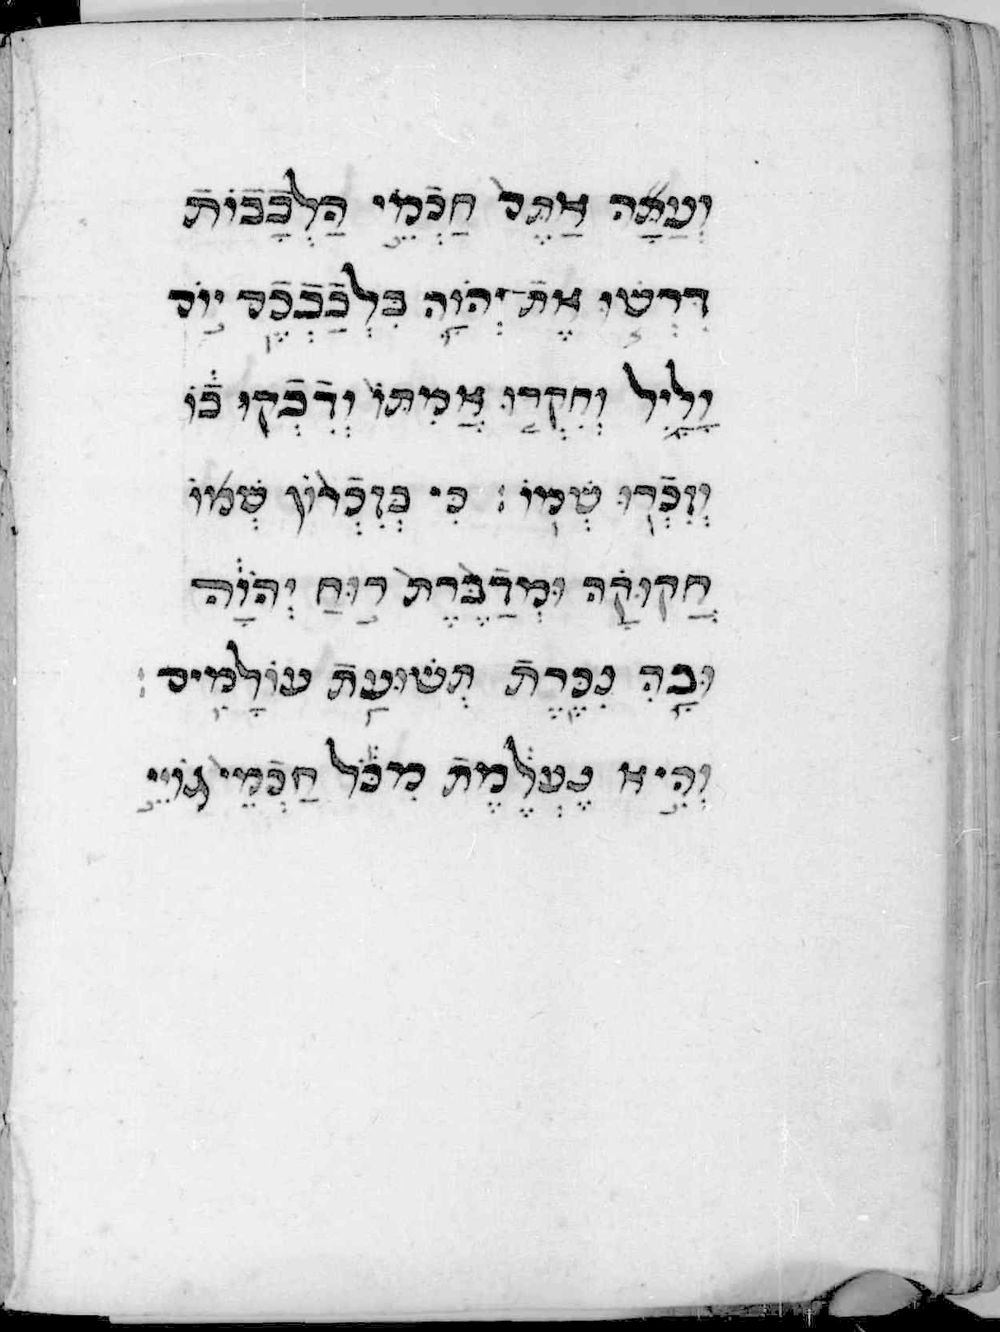 וְעַתָּה אַתֶּם חַכְֿמֵי הַלְּבָֿבֿוֹתֿ
דִּרְשׁוּ אֶתֿ־יְהֹוָה בִּלְבַֿבְֿכֶֿם יוֹם
וָלַיִל וְחִקְרוּ אֲמִתּוֹ וְדִֿבְֿקוּ בֿוֹ
וְזִכְֿרוּ שְׁמוֹ : כִּי בְּזִכְֿרוֹן שְׁמוֹ
חֲקוּקָה וּמְדַֿבֶּרֶת רוּחַ יְהֹוָה
וּבָֿהּ נִכֶּרֶתֿ תְּשׁוּעַתֿ עוֹלָמִים :
וְהִיא נֶעְלֶמֶתֿ מִכֹּל חַכְֿמֵי גוֹיֵי